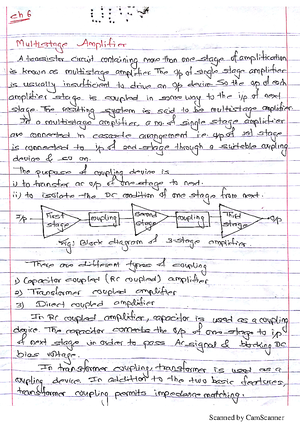 Ch 6
Multistage Amplifier
A transistor circuit containing more than one stage of amplification
is known as multistage amplifier. The o/p of single stage amplifier
is usually insufficient to drive an o/p device. So the o/p of each
amplifier stage is coupled in some way to the i/p of next
stage. The resulting system is said to be multistage amplifier.
In a multistage amplifier, a no. of single stage amplifier
are connected in cascade arrangement i.e o/p of 1st stage
is connected to i/p of 2nd stage through a suitable coupling
device & so on.
The purpose of coupling device is
i) to transfer ac o/p of one stage to next.
ii) to isolate the DC condition of one stage from next.
I/p First stage coupling Second stage coupling Third stage o/p
Fig: Block diagram of 3-stage amplifier.
There are different types of coupling
1) Capacitor coupled (RC coupled) amplifier
2) Transformer coupled amplifier
3) Direct coupled amplifier
In RC coupled amplifier, capacitor is used as a coupling
device. The capacitor connects the o/p of one stage to i/p
of next stage in order to pass AC signal & blocking DC
bias voltage.
In transformer coupling, transformer is used as a
coupling device. In addition to the two basic features,
transformer coupling permits impedance matching.
Scanned by CamScanner